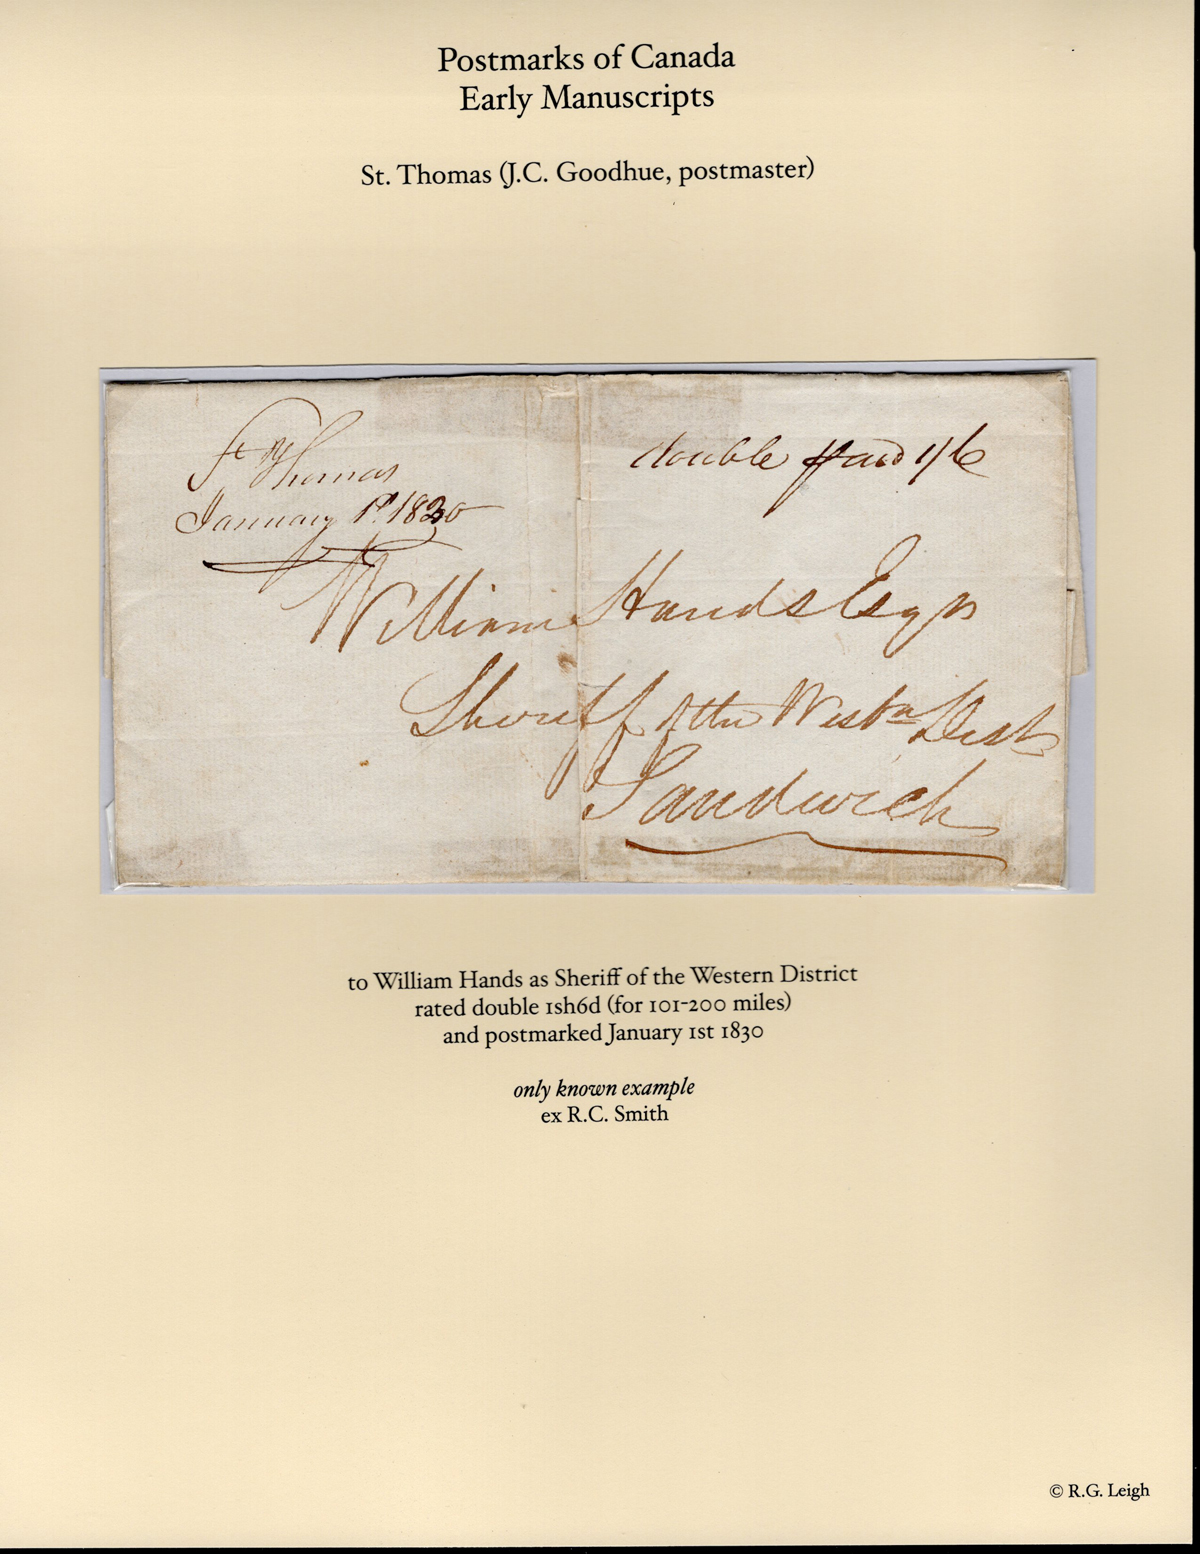 Postmarks of Canada
Early Manuscripts
St. Thomas (J.C. Goodhue, postmaster)
St Thomas
January 1st. 1830
double paid 1/6
William Hands Esqr
Sheriff of the Westn Dist
Sandwich
to William Hands as Sheriff of the Western District
rated double 1sh6d (for 101-200 miles)
and postmarked January 1st 1830
only known example
ex R.C. Smith
© R.G. Leigh